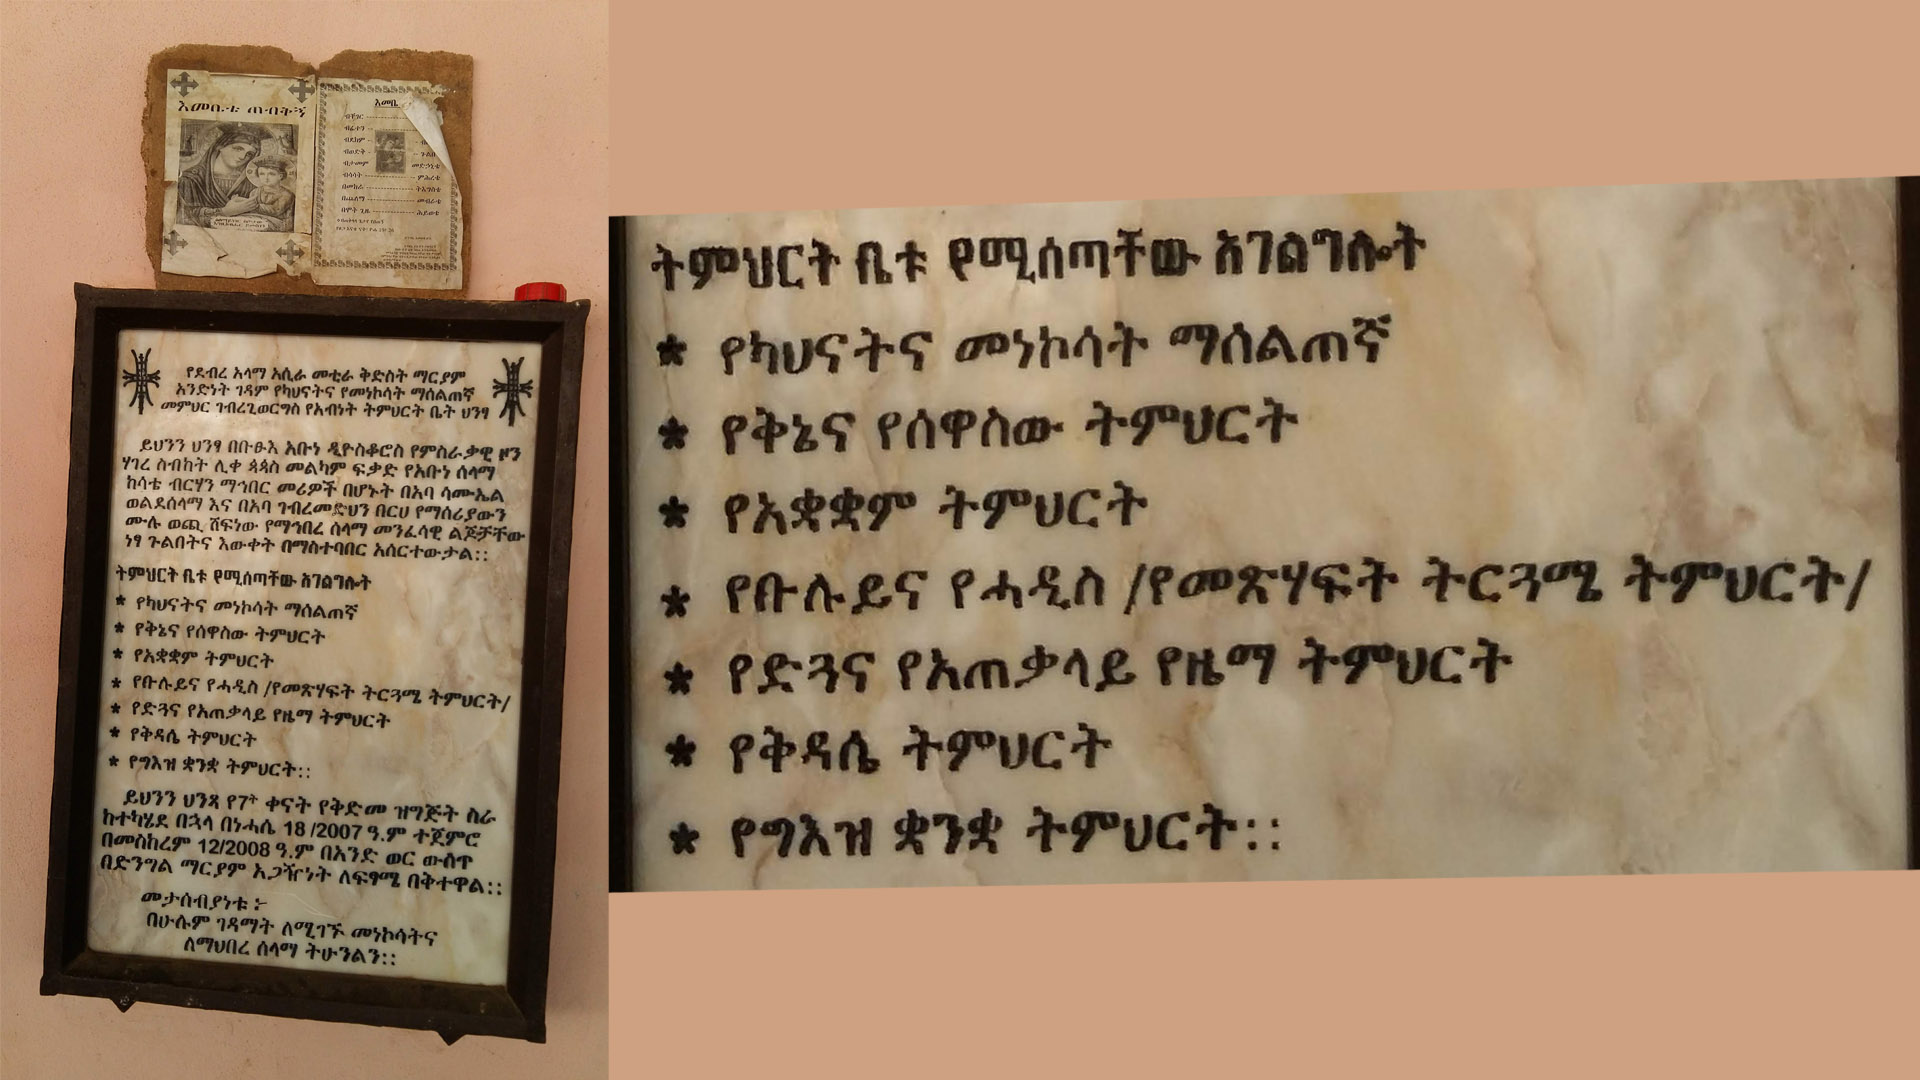 እመቤቴ ጠብቂኝ
እመቤ
ብቸገር
በመከራ
ትእግስቴ
በጨለማ
መብራቴ
በሞት ጊዜ
ሕይወቴ
ምሕረቴ
መድኃኒቴ
የደብረ አላማ አሲራ መቲራ ቅድስት ማርያም
አንድነት ገዳም የካህናትና የመነኮሳት ማሰልጠኛ
መምህር ገብረጊወርግስ የአብነት ትምህርት ቤት ህንፃ
ይህንን ህንፃ በቡፁእ አቡነ ዲዮስቆሮስ የምስራቃዊ ዞን
ሃገረ ስብከት ሊቀ ጳጳስ መልካም ፍቃድ የአቡነ ሰላማ
ከሳቴ ብርሃን ማኅበር መሪዎች በሆኑት በአባ ሳሙኤል
ወልደሰላማ እና በአባ ገብረመድህን በርሀ የማሰሪያውን
ሙሉ ወጪ ሸፍነው የማኅበረ ሰላማ መንፈሳዊ ልጆቻቸው
ነፃ ጉልበትና እውቀት በማስተባበር አሰርተውታል፡፡
ትምህርት ቤቱ የሚሰጣቸው አገልግሎት
* የካህናትና መነኮሳት ማሰልጠኛ
* የቅኔና የሰዋስው ትምህርት
* የአቋቋም ትምህርት
* የቡሉይና የሓዲስ /የመጽሃፍት ትርጓሜ ትምህርት/
* የድጓና የአጠቃላይ የዜማ ትምህርት
* የቅዳሴ ትምህርት
* የግእዝ ቋንቋ ትምህርት፡፡
ይህንን ህንጻ የ7ት ቀናት የቅድመ ዝግጅት ስራ
ከተካሄደ በኋላ በነሓሴ 18 /2007 ዓ.ም ተጀምሮ
በመስከረም 12/2008 ዓ.ም በአንድ ወር ውስጥ
በድንግል ማርያም አጋዥነት ለፍፃሜ በቅተዋል፡፡
መታሰብያነቱ ፦
በሁሉም ገዳማት ለሚገኙ መነኮሳትና
ለማህበረ ሰላማ ትሁንልን፡፡
ትምህርት ቤቱ የሚሰጣቸው አገልግሎት
* የካህናትና መነኮሳት ማሰልጠኛ
* የቅኔና የሰዋስው ትምህርት
* የአቋቋም ትምህርት
* የቡሉይና የሓዲስ /የመጽሃፍት ትርጓሜ ትምህርት/
* የድጓና የአጠቃላይ የዜማ ትምህርት
* የቅዳሴ ትምህርት
* የግእዝ ቋንቋ ትምህርት፡፡